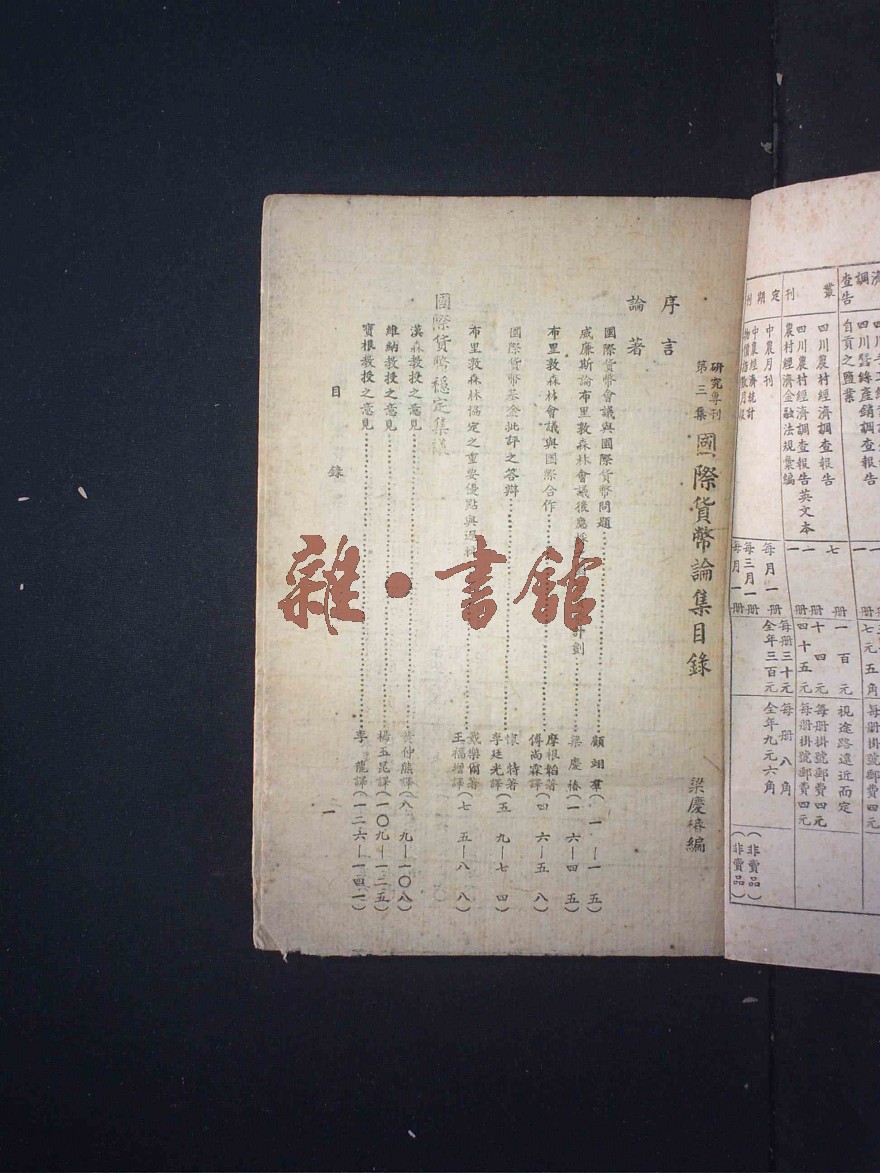 研究專刊
第三集
國際貨幣論集目錄
梁慶椿編
序言
論著
國際貨幣會議與國際貨幣問題 顧翊羣(一—一五)
威廉斯論布里敦森林會議後應採 計劃 梁慶椿(一六—四五)
布里敦森林會議與國際合作 摩根韜著 傅尚霖譯(四六—五八)
國際貨幣基金批評之答辯 懷特著 李廷光譯(五九—七四)
布里敦森林協定之重要優點與 王福增譯(七五—八八)
國際貨幣穩定集議
漢森教授之意見 黃仲熊譯(八九—一〇八)
維納教授之意見 楊玉昆譯(一〇九—一二五)
寶根教授之意見 李龍譯(一二六—一四一)
目錄
一
濟調查告
四川蠶絲產銷調查報告 一
自貢之鹽業 一
叢刊
四川農村經濟調查報告 七冊 一百元 視途路遠近而定
四川農村經濟調查報告英文本 一冊 十四元 每冊掛號郵費四元
農村經濟金融法規彙編 一冊 四十五元 每冊掛號郵費四元
定期刊
中農月刊 每月一冊 每冊三十元 全年三百元 每冊八角 全年九元六角
中農經濟統計 每三月一冊 (非賣品)
物價指數月報 每月一冊 (非賣品)
雜·書館